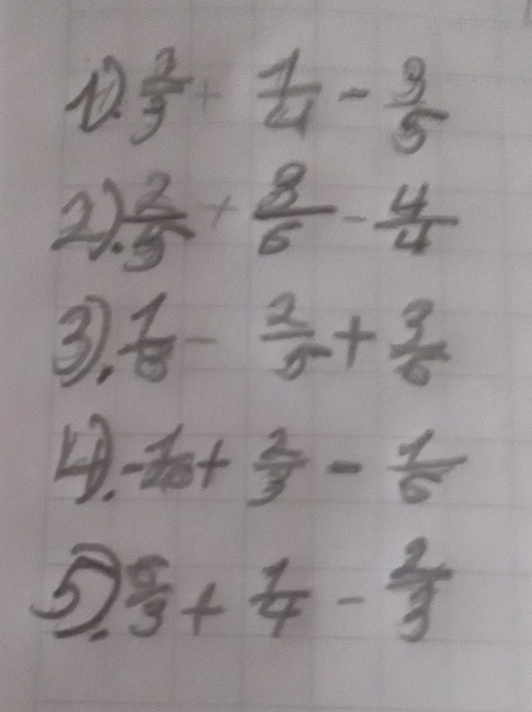 1). 2/3 + 1/4 - 3/5
2). 2/5 + 8/6 - 4/4
3). 1/8 - 2/5 + 3/6
4). + 2/3 - 1/6
5). 5/3 + 1/4 - 2/3